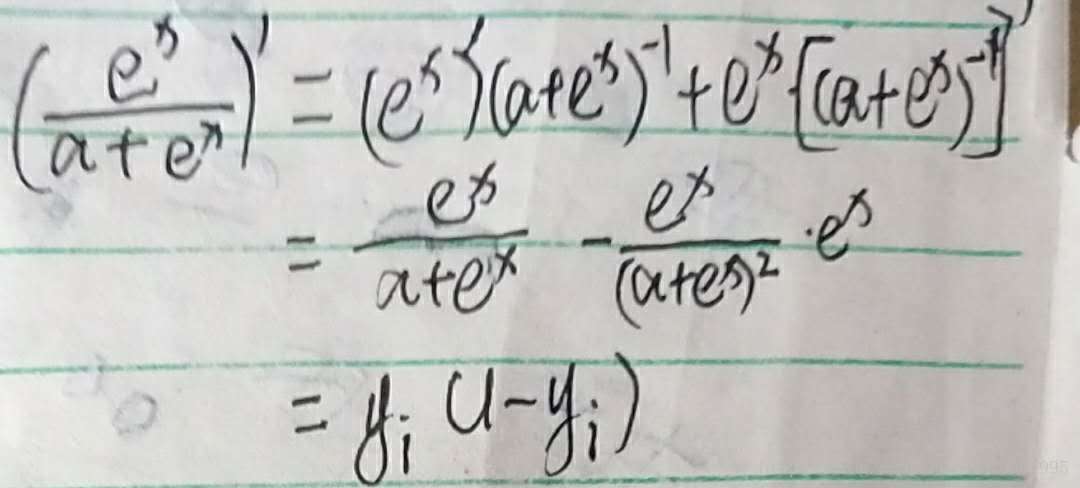 (e^x/(a+e^x))' = (e^x)'(a+e^x)^-1 + e^x[(a+e^x)^-1]'
= e^x/(a+e^x) - e^x/(a+e^x)^2 · e^x
= y_i (1-y_i)
995